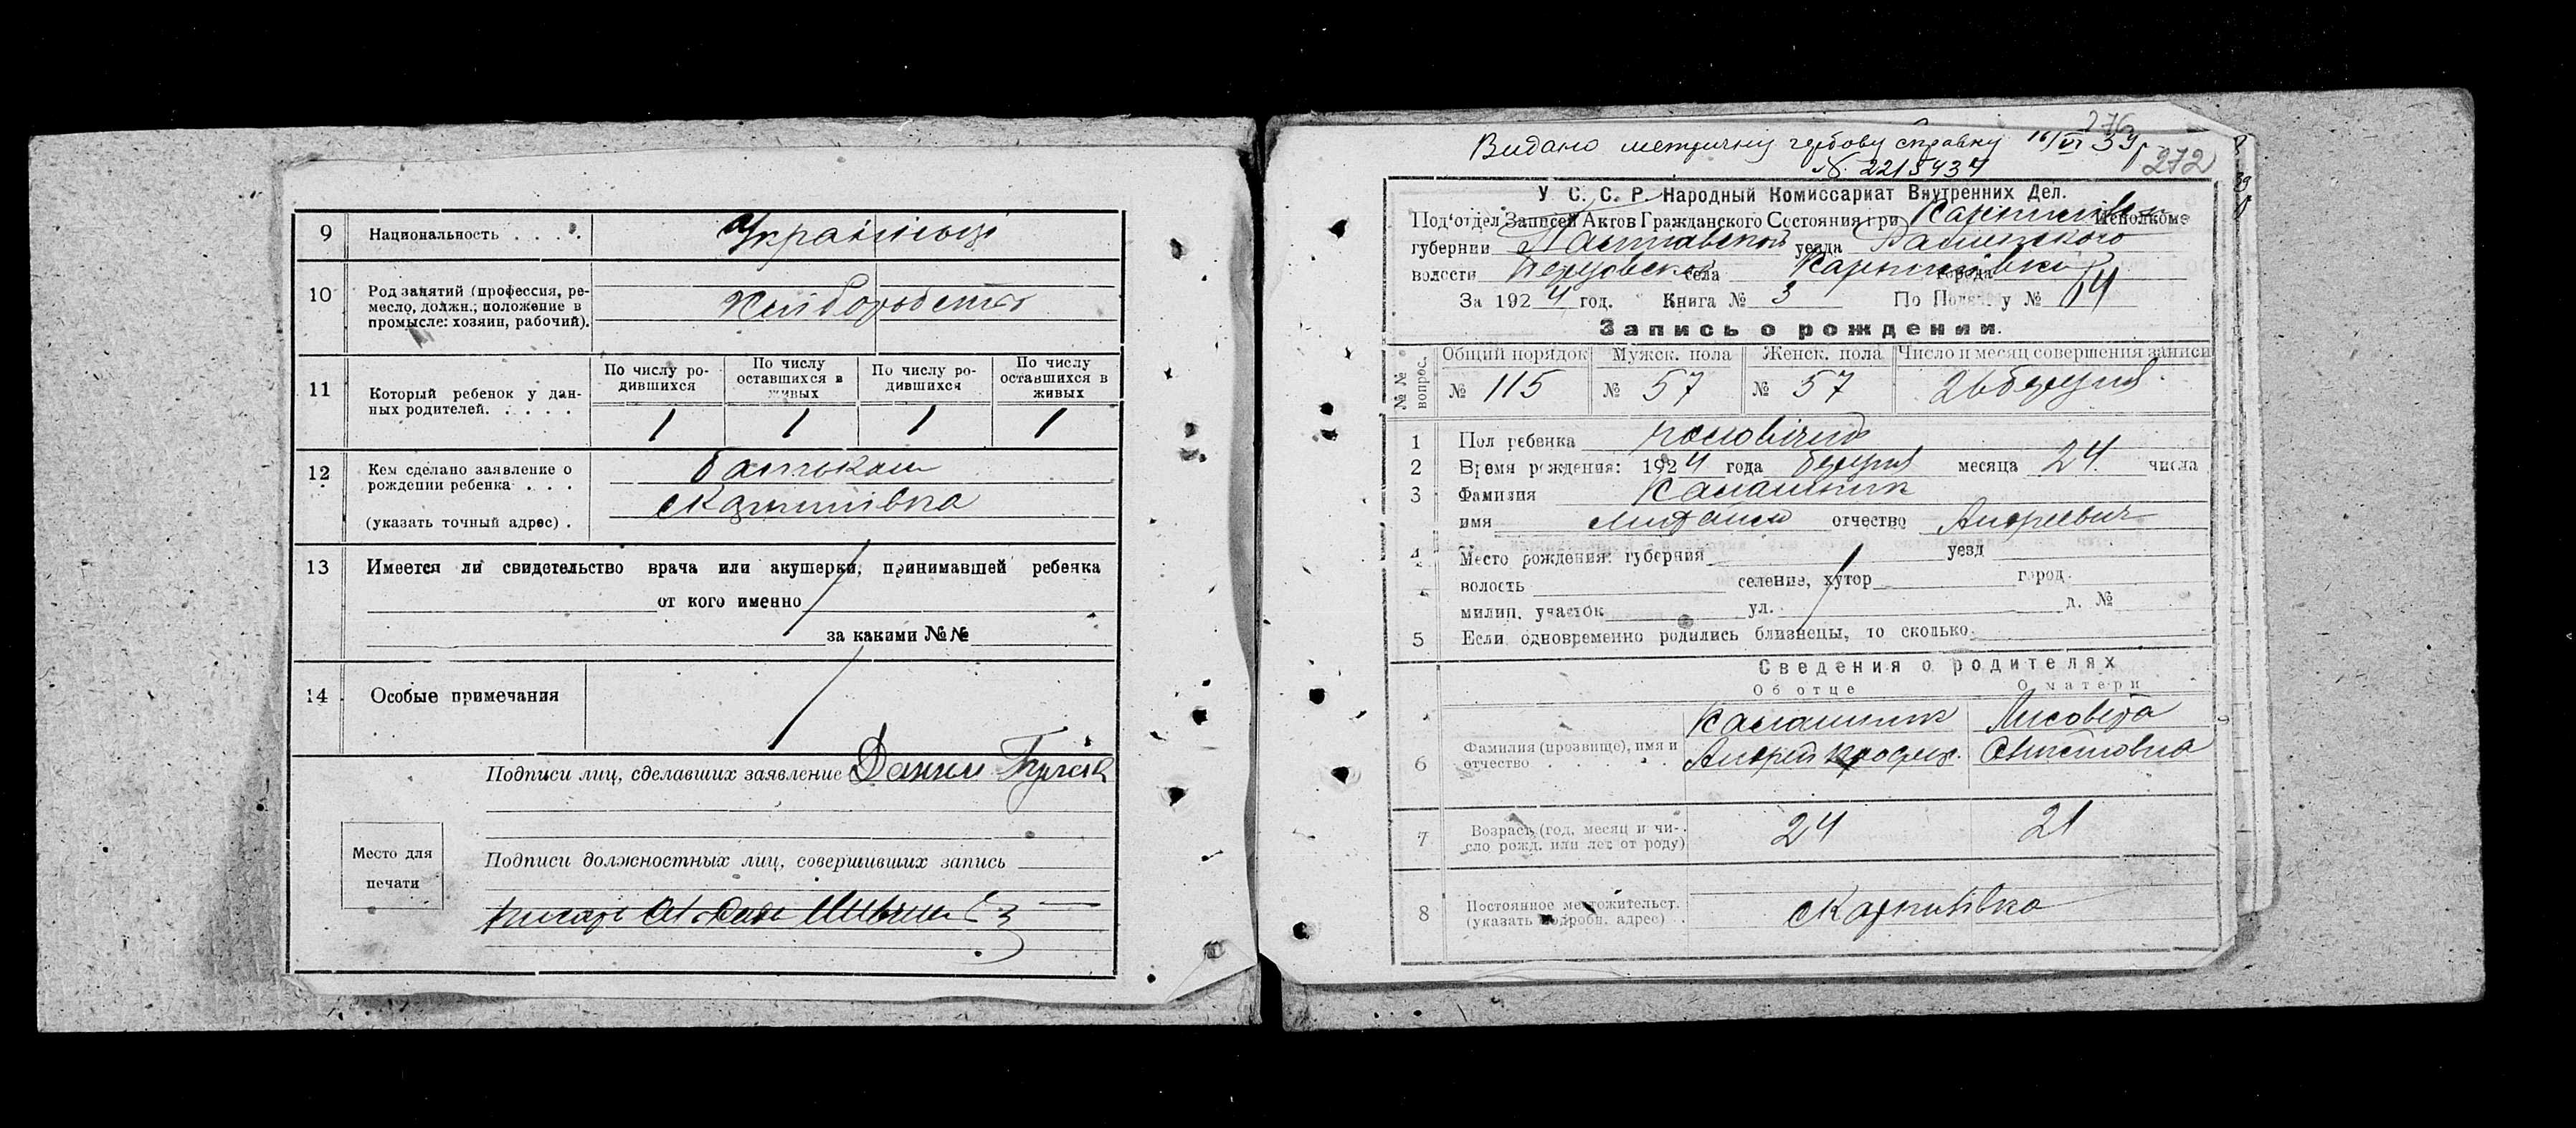 9 Национальность . . . . Українські
10 Род занятий (профессия, ре-
месло, должн., положение в
промысле: хозяин, рабочий).
Хлиборобство
11 Который ребенок у дан-
ных родителей. . . . .
По числу ро-
дившихся
По числу
оставшихся в
живых
По числу ро-
дившихся
По числу
оставшихся в
живых
1 1 1 1
12 Кем сделано заявление о
рождении ребенка . . .
(указать точный адрес) .
батьком
с Карпилівка
13 Имеется ли свидетельство врача или акушерки, принимавшей ребенка
от кого именно
за какими №№
14 Особые примечания
Подписи лиц, сделавших заявление
Место для
печати
Подписи должностных лиц, совершивших запись
276
Видано метричну гербову справку 16/VI 39 р
№ 2215437
272
У. С. С. Р. Народный Комиссариат Внутренних Дел.
Под'отдел Записей Актов Гражданского Состояния при Исполкоме
губернии Полтавской уезда
волости села города
За 1924 год. Книга № 3 По № 64
Запись о рождении.
№№ вопрос.
Общий порядок Мужск. пола Женск. пола Число и месяц совершения записи
№ 115 № 57 № 57 26 березня
1 Пол ребенка чоловічий
2 Время рождения: 1924 года березня месяца 24 числа
3 Фамилия Калашник
имя отчество Андреевич
4 Место рождения: губерния уезд
волость селение, хутор город
милиц. участок ул. д. №
5 Если одновременно родились близнецы, то сколько
Сведения о родителях
Об отце О матери
6 Фамилия (прозвище), имя и
отчество . . . . .
Калашник
Андрей
Лисовета
7 Возраст (год, месяц и чи-
сло рожд. или лет от роду)
24 21
8 Постоянное местожительст.
(указать подробн. адрес) .
с Карпилівка